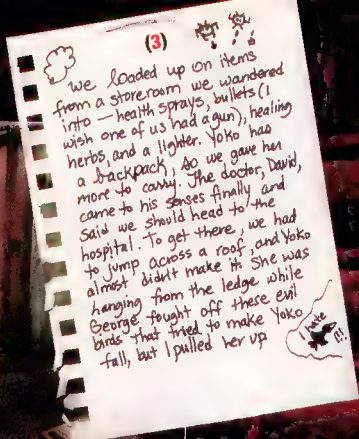 (3)
We loaded up on items
from a storeroom we wandered
into — health sprays, bullets (I
wish one of us had a gun), healing
herbs, and a lighter. Yoko has
a backpack, so we gave her
more to carry. The doctor, David,
came to his senses finally and
said we should head to the
hospital. To get there, we had
to jump across a roof, and Yoko
almost didn't make it. She was
hanging from the ledge while
George fought off these evil
birds that tried to make Yoko
fall, but I pulled her up
I hate
!!!